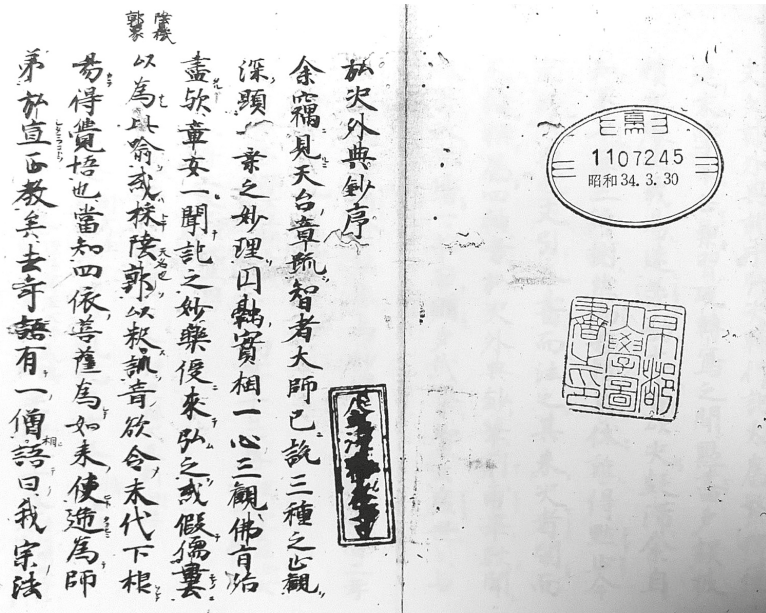 弘決外典鈔序
余竊見天台章疏智者大師已說三種之止觀
深顯一乘之妙理円融實相一心三觀佛旨殆
盡欤章安一聞記之妙樂復來弘之或假儒
以為比喻或採陸郭以釈訓音欲令末代下根
陸機
郭象
易得覺悟也當知四依菩薩為如来使造為師
弟弘宣正教矣去年語有一僧相語曰我宗法
1107245
昭和34.3.30
京都
大學圖
書之印